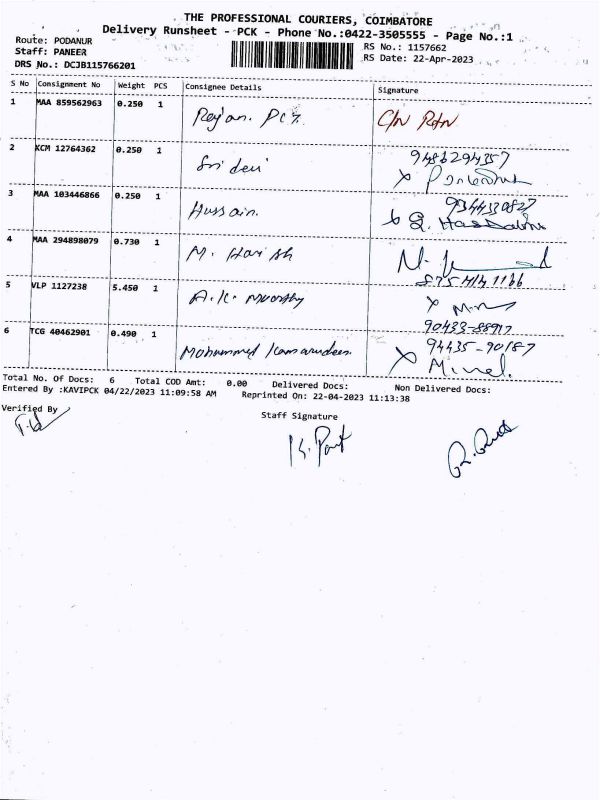 THE PROFESSIONAL COURIERS, COIMBATORE
Delivery Runsheet - PCK - Phone No.:0422-3505555 - Page No.:1
Route: PODANUR
Staff: PANEER
DRS No.: DCJB115766201
RS No.: 1157662
RS Date: 22-Apr-2023
S No Consignment No Weight PCS Consignee Details Signature
1 MAA 859562963 0.250 1 C/N Rtn
2 KCM 12764362 0.250 1 Sri devi 9486294357
3 MAA 103446866 0.250 1 Hussain. 9344330827
4 MAA 294898079 0.730 1 M. Harish
5 VLP 1127238 5.450 1 A.K. Moorthy
90433-88917
6 TCG 40462901 0.490 1 Mohammed Kamarudeen 94435-90187
Total No. Of Docs: 6 Total COD Amt: 0.00 Delivered Docs: Non Delivered Docs:
Entered By :KAVIPCK 04/22/2023 11:09:58 AM Reprinted On: 22-04-2023 11:13:38
Verified By
Staff Signature